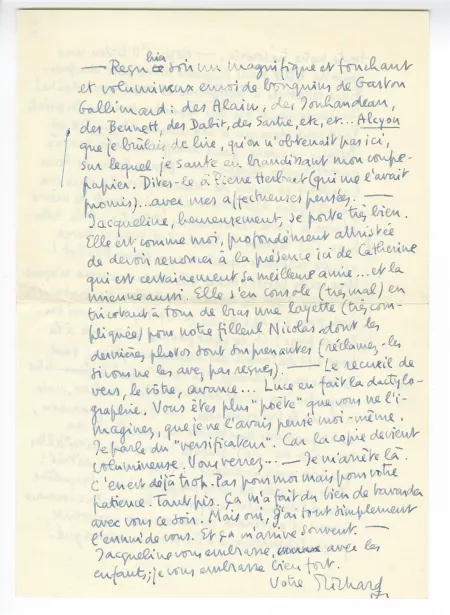 hier
— Reçu ce soir un magnifique et touchant
et volumineux envoi de bouquins de Gaston
Gallimard : des Alain, des Jouhandeau,
des Bennett, des Dabit, des Sartre, etc, et... Alcyon
que je brûlais de lire, qu'on n'obtenait pas ici,
sur lequel je saute en brandissant mon coupe-
papier. Dites-le à Pierre Herbart (qui me l'avait
promis)... avec mes affectueuses pensées. —
Jacqueline, heureusement, se porte très bien.
Elle est, comme moi, profondément attristée
de devoir renoncer à la présence ici de Catherine
qui est certainement sa meilleure amie... et la
mienne aussi. Elle s'en console (très mal) en
tricotant à tour de bras une layette (très com-
pliquée) pour notre filleul Nicolas dont les
dernières photos sont surprenantes (réclamez-les
si vous ne les avez pas reçues). — Le recueil de
vers, le vôtre, avance... Luce en fait la dactylo-
graphie. Vous êtes plus "poète" que vous ne l'i-
maginez, que je ne l'avais pensé moi-même.
Je parle du "versificateur". Car la copie devient
volumineuse. Vous verrez... — Je m'arrête là.
C'en est déjà trop. Pas pour moi mais pour votre
patience. Tant pis. Ça m'a fait du bien de bavarder
avec vous ce soir. Mais oui, j'ai tout simplement
l'ennui de vous. Et ça m'arrive souvent. —
Jacqueline vous embrasse, avec les
enfants; je vous embrasse bien fort.
Votre Richard